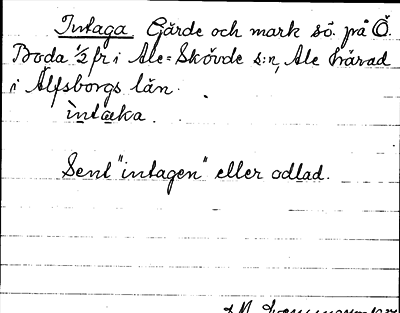 Intaga Gärde och mark sö. på Ö.
Boda 1/2 fr i Ale-Skövde s:n, Ale härad
i Älfsborgs län.
ìntaka.
Sent "intagen" eller odlad.